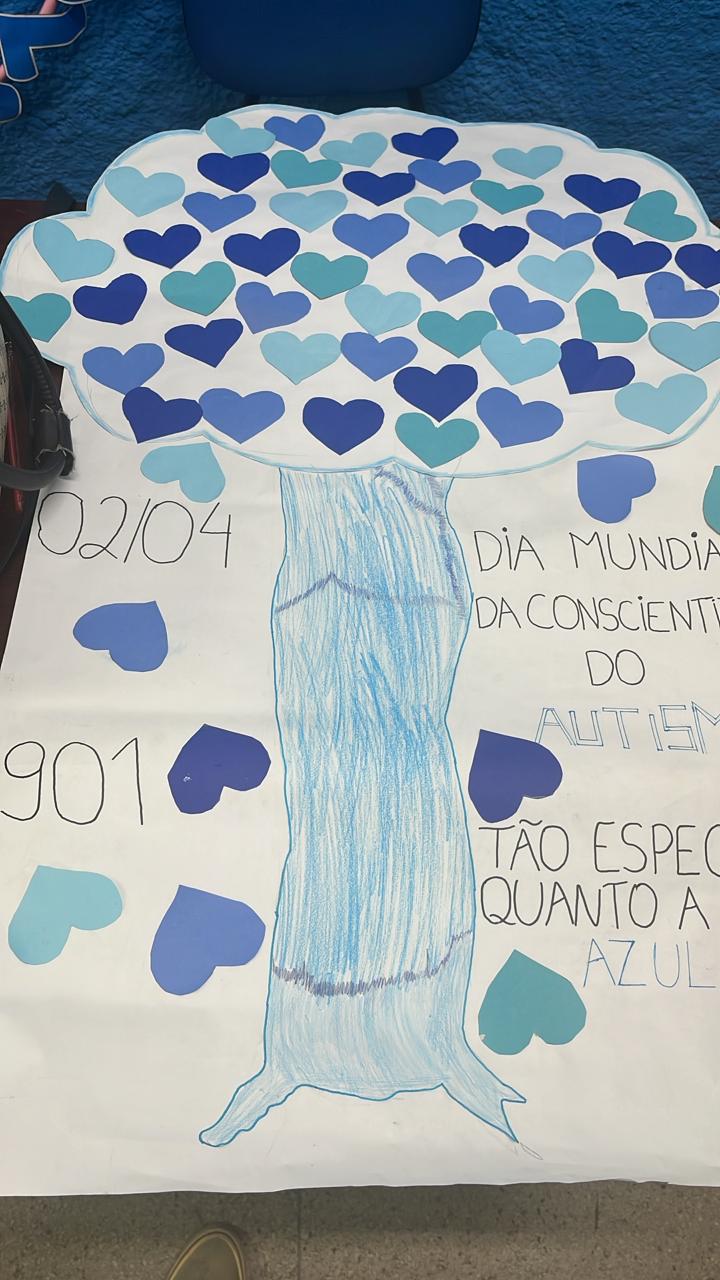 02/04
901
DIA MUNDIA
DA CONSCIENTI
DO
AUTISM
TÃO ESPEC
QUANTO A
AZUL